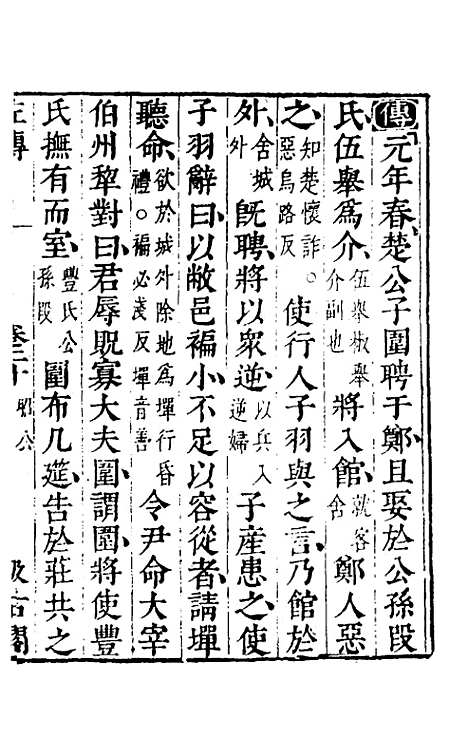 傳元年春楚公子圍聘于鄭且娶於公孫段
氏伍舉為介伍舉椒舉介副也將入館就客舍鄭人惡
之知楚懷詐。惡烏路反使行人子羽與之言乃館於
外舍城外既聘將以衆逆以兵入逆婦子產患之使
子羽辭曰以敝邑褊小不足以容從者請墠
聽命欲於城外除地為墠行昏禮。褊必淺反墠音善令尹命大宰
伯州犂對曰君辱貺寡大夫圍謂圍將使豐
氏撫有而室豐氏公孫段圍布几筵告於莊共之
左傳 卷二十 昭公 汲古閣